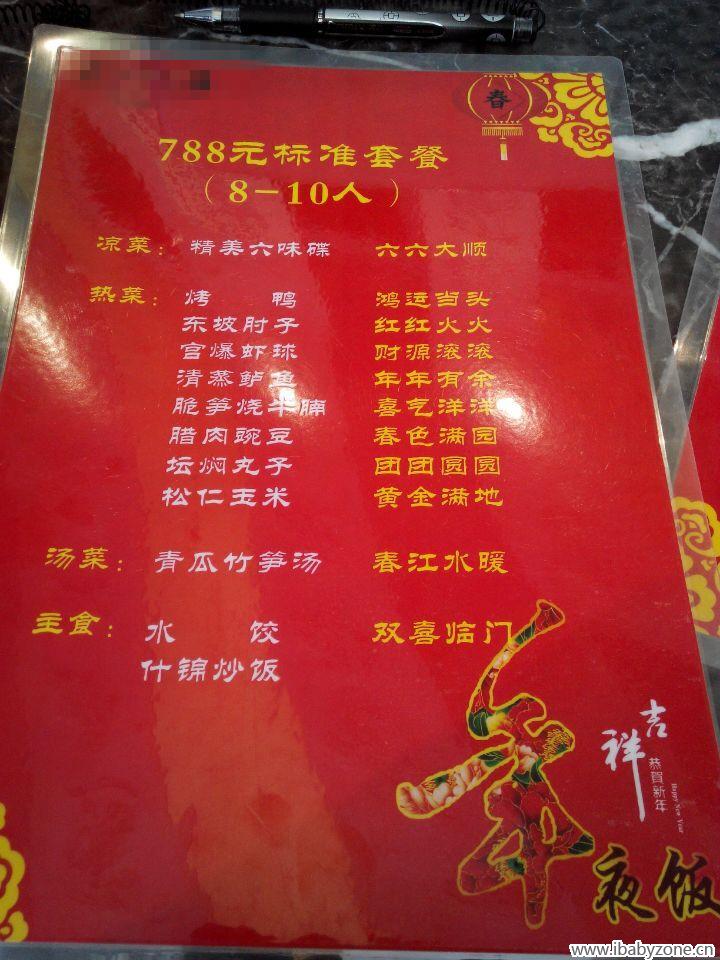 春
788元标准套餐
（8-10人）
凉菜： 精美六味碟 六六大顺
热菜： 烤 鸭 鸿运当头
东坡肘子 红红火火
宫爆虾球 财源滚滚
清蒸鲈鱼 年年有余
脆笋烧牛腩 喜气洋洋
腊肉豌豆 春色满园
坛焖丸子 团团圆圆
松仁玉米 黄金满地
汤菜： 青瓜竹笋汤 春江水暖
主食： 水 饺 双喜临门
什锦炒饭
吉祥
恭賀新年
Happy New Year
年夜饭
www.ibabyzone.cn